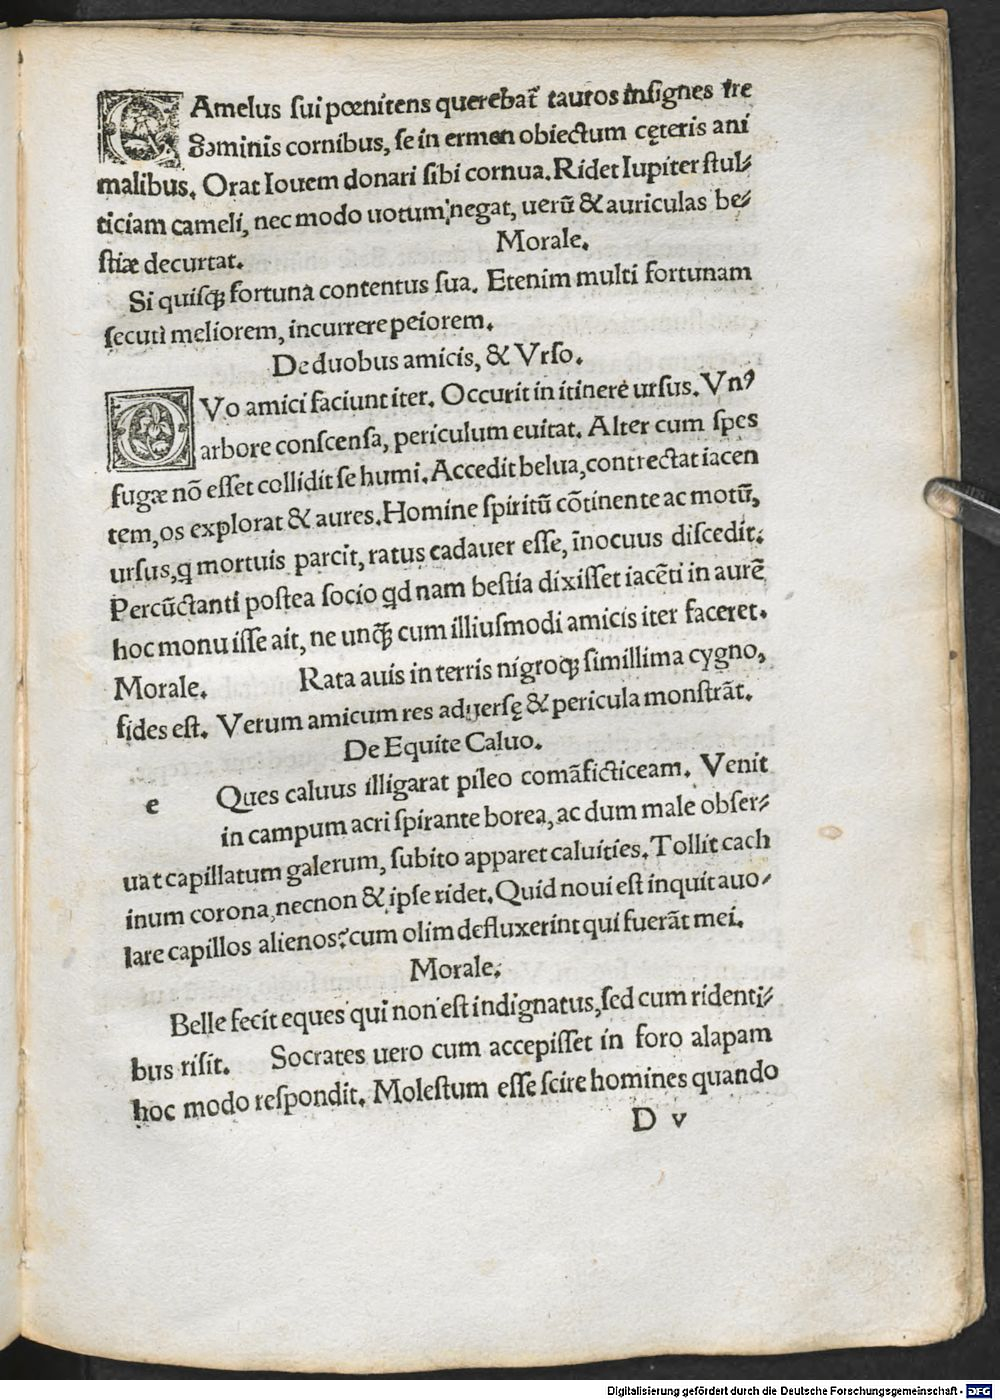 CAmelus ſui pœnitens querebat᷑ tauros inſignes ire
geminis cornibus, ſe in ermen obiectum cęteris ani
malibus. Orat Iouem donari ſibi cornua. Ridet Iupiter ſtul⸗
ticiam cameli, nec modo uotum negat, uerū & auriculas be⸗
ſtiæ decurtat. Morale.
Si quiſq; fortuna contentus ſua. Etenim multi fortunam
ſecuti meliorem, incurrere peiorem.
De duobus amicis, & Vrſo.
DVo amici faciunt iter. Occurit in itinere urſus. Vnꝰ
arbore conſcenſa, periculum euitat. Alter cum ſpes
fugæ nō eſſet collidit ſe humi. Accedit belua, contrectat iacen
tem, os explorat & aures. Homine ſpiritū cōtinente ac motū,
urſus, q mortuis parcit, ratus cadauer eſſe, īnocuus diſcedit.
Percūctanti poſtea ſocio qd nam beſtia dixiſſet iacēti in aurē
hoc monuiſſe ait, ne unq̄ȝ cum illiuſmodi amicis iter faceret.
Morale. Rata auis in terris nigroq; ſimillima cygno,
fides eſt. Verum amicum res aduerſę & pericula monſtrāt.
De Equite Caluo.
e Ques caluus illigarat pileo comā ficticeam. Venit
in campum acri ſpirante borea, ac dum male obſer⸗
uat capillatum galerum, ſubito apparet caluities. Tollit cach
inum corona, necnon & ipſe ridet. Quid noui eſt inquit auo⸗
lare capillos alienos? cum olim defluxerint qui fuerāt mei.
Morale.
Belle fecit eques qui non eſt indignatus, ſed cum ridenti⸗
bus riſit. Socrates uero cum accepiſſet in foro alapam
hoc modo reſpondit. Moleſtum eſſe ſcire homines quando
D v
Digitalisierung gefördert durch die Deutsche Forschungsgemeinschaft - DFG